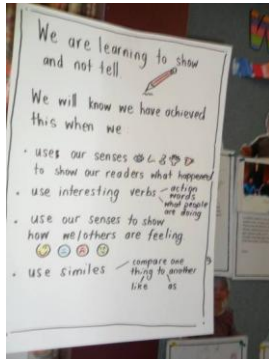 We are learning to show
and not tell.
We will know we have achieved
this when we
• uses our senses
to show our readers what happened
• use interesting verbs - action
words
what people
are doing
• use our senses to show
how we/others are feeling
• use similes - compare one
thing to another
like as